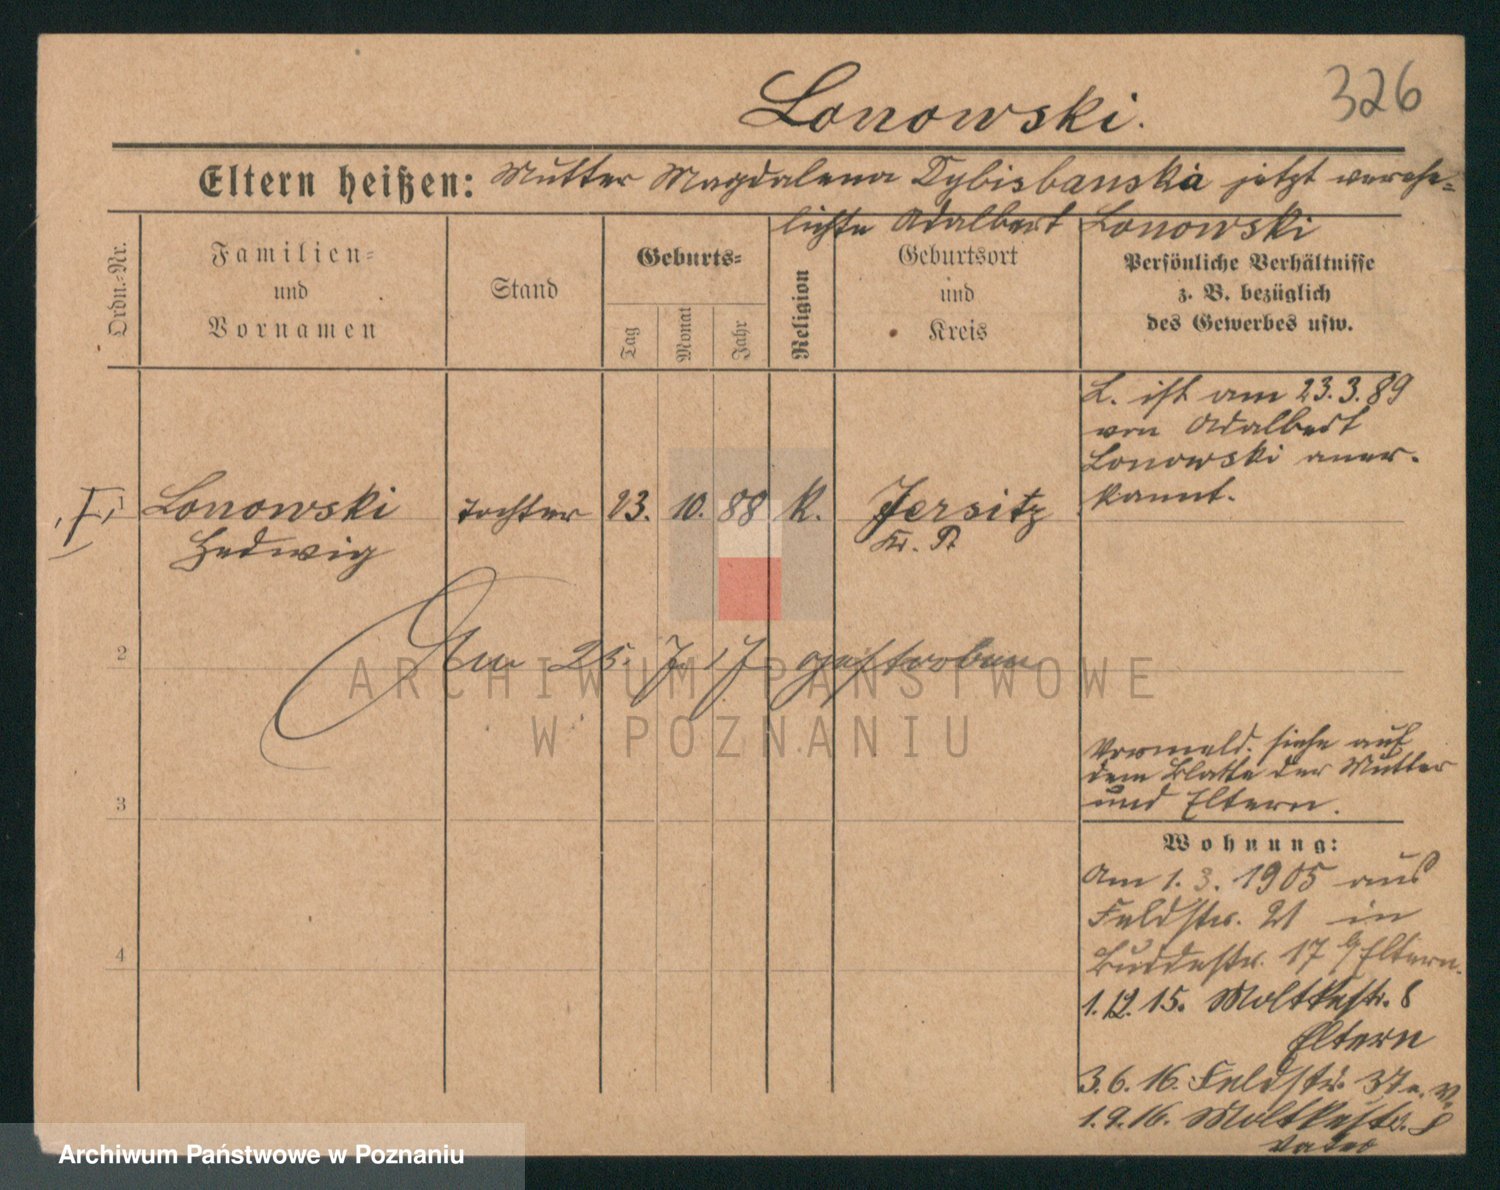 326
Lonowski.
Eltern heißen: Mutter Magdalena Dybisbanska jetzt verehe=
lichte Adalbert Lonowski
Ordn.=Nr.
Familien=
und
Vornamen
Stand
Geburts=
Tag
Monat
Jahr
Religion
Geburtsort
und
Kreis
Persönliche Verhältnisse
z. B. bezüglich
des Gewerbes usw.
L. ist am 23.3.89
von Adalbert
Lonowski aner-
kannt.
1
Lonowski
Hedwig
Tochter
23.
10.
88
K.
Jersitz
Kr. P.
2
Am 25. 7. 17 gestorben
3
Vormeld. siehe auf
dem Blatte der Mutter
und Eltern.
Wohnung:
Am 1. 3. 1905 aus
Feldstr. 21 in
Buddestr. 17 b/Eltern.
4
1.12.15. Moltkestr. 8
Eltern
3.6.16. Feldstr. 37 a. v.
1.9.16. Moltkestr. 8
Vater
ARCHIWUM PAŃSTWOWE
W POZNANIU
Archiwum Państwowe w Poznaniu